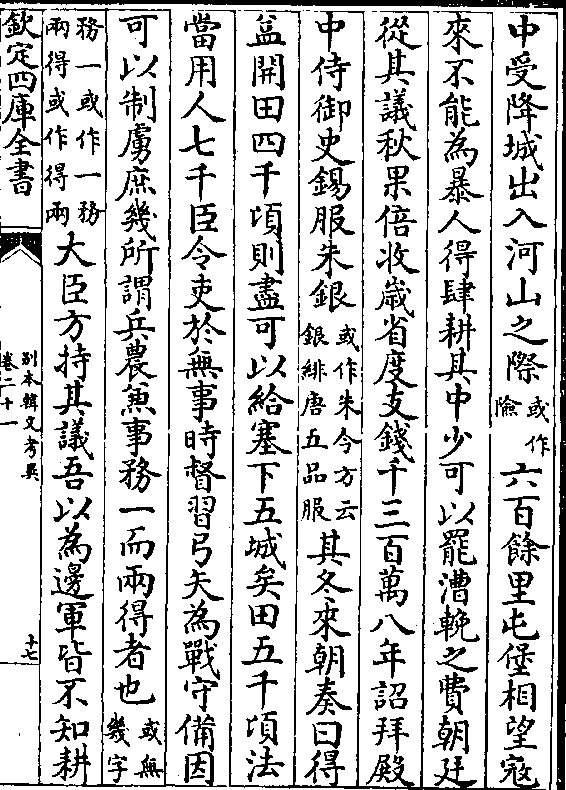 中受降城出入河山之際或作險六百餘里屯堡相望寇
來不能為暴人得肆耕其中少可以罷漕輓之費朝廷
從其議秋果倍收歲省度支錢千三百萬八年詔拜殿
中侍御史錫服朱銀或作朱今方云銀緋唐五品服其冬來朝奏曰得
益開田四千頃則盡可以給塞下五城矣田五千頃法
當用人七千臣令吏於無事時督習弓矢為戰守備因
可以制虜庶幾所謂兵農兼事務一而兩得者也或無幾字
務一或作一務兩得或作得兩大臣方持其議吾以為邊軍皆不知耕
欽定四庫全書
別本韓文考異
卷二十一
十七